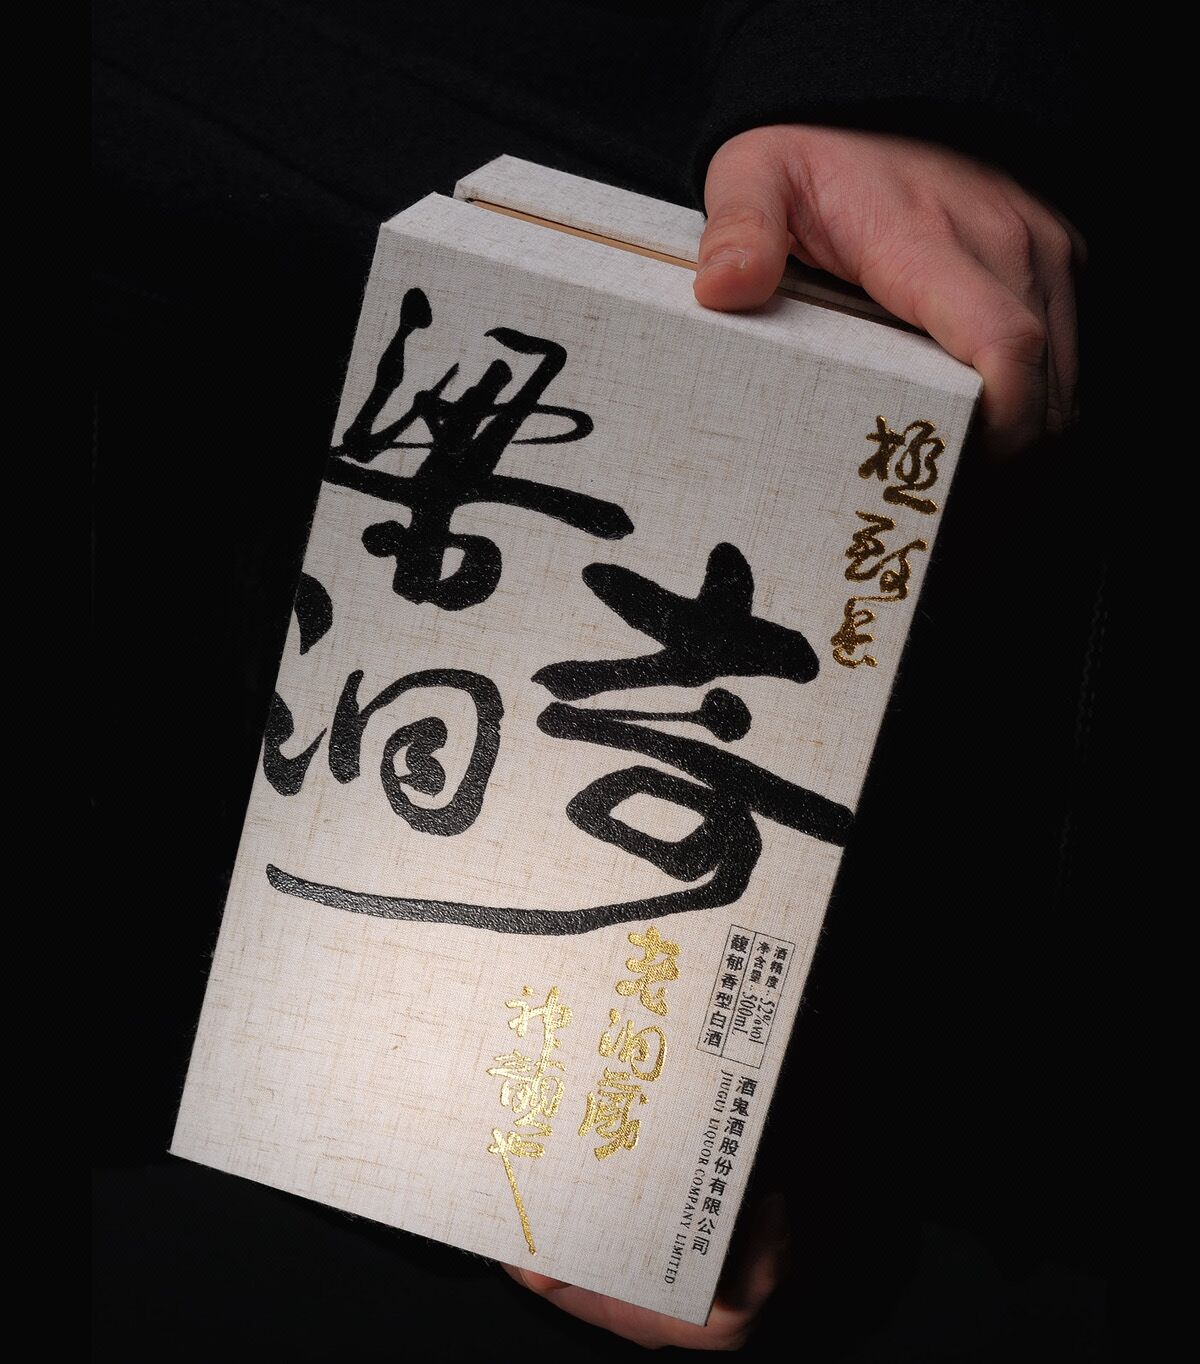 極致
梁
洞
奇
老洞藏
神韻也
酒精度：52%vol
净含量：500mL
馥郁香型白酒
酒鬼酒股份有限公司
JIUGUI LIQUOR COMPANY LIMITED